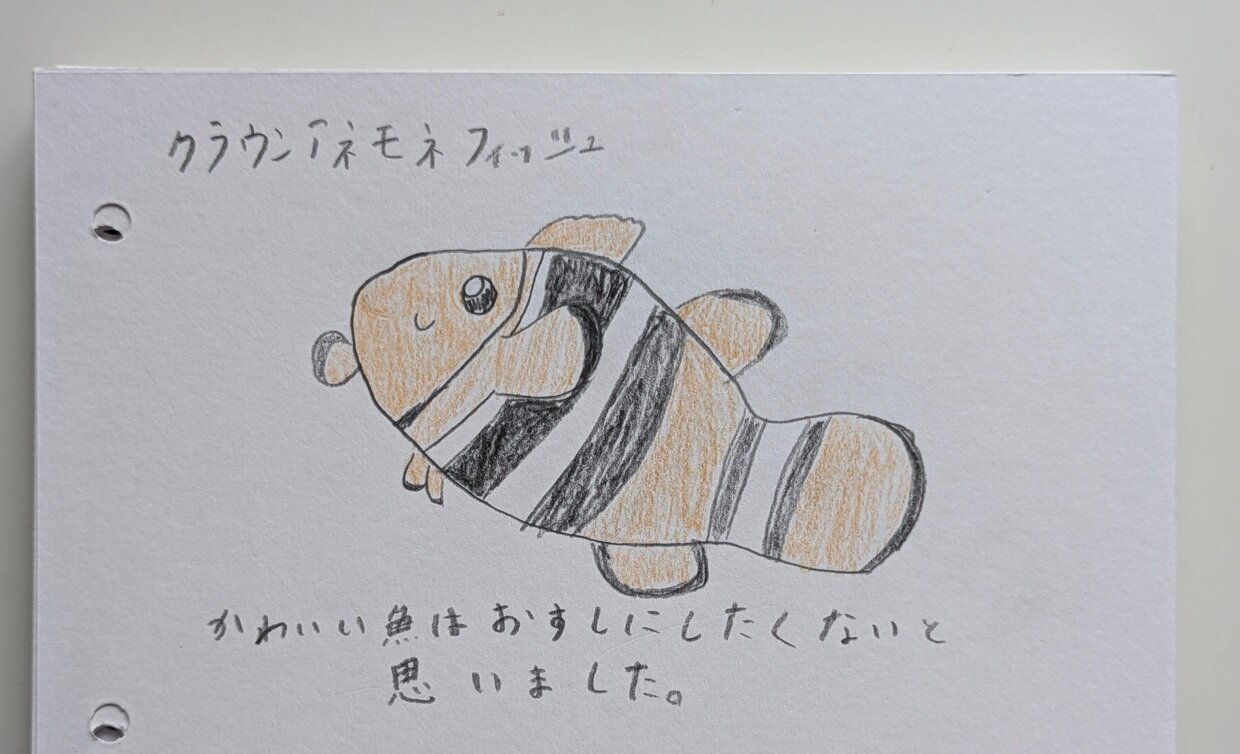 クラウンアネモネフィッシュ
かわいい魚はおすしにしたくないと
思いました。